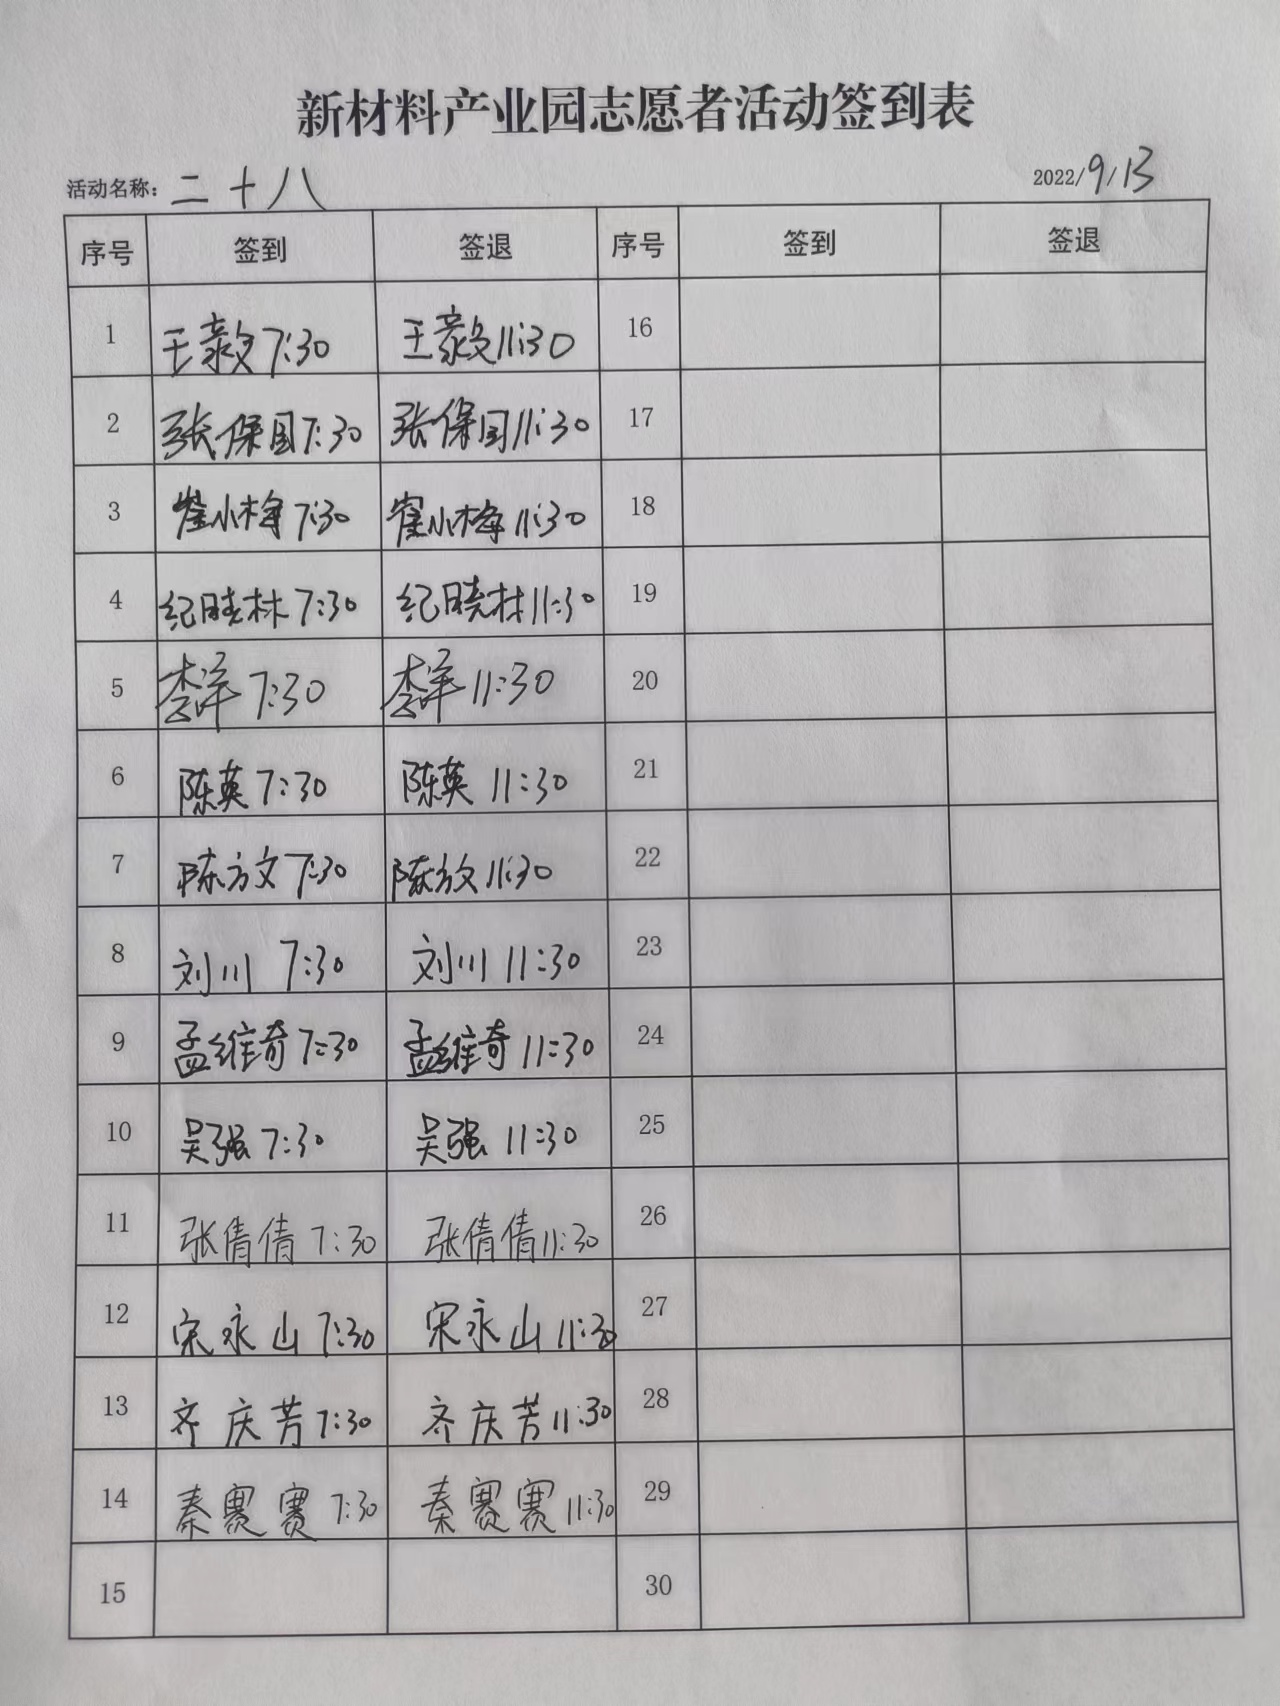 新材料产业园志愿者活动签到表
活动名称：二十八 2022/9/13
序号 签到 签退 序号 签到 签退
1 王毅7:30 王毅11:30 16
2 张保国7:30 张保国11:30 17
3 崔小梅7:30 崔小梅11:30 18
4 纪晓林7:30 纪晓林11:30 19
5 李洋7:30 李洋11:30 20
6 陈英7:30 陈英11:30 21
7 陈方文7:30 陈方文11:30 22
8 刘川7:30 刘川11:30 23
9 孟维奇7:30 孟维奇11:30 24
10 吴强7:30 吴强11:30 25
11 张倩倩7:30 张倩倩11:30 26
12 宋永山7:30 宋永山11:30 27
13 齐庆芳7:30 齐庆芳11:30 28
14 秦赛赛7:30 秦赛赛11:30 29
15 30